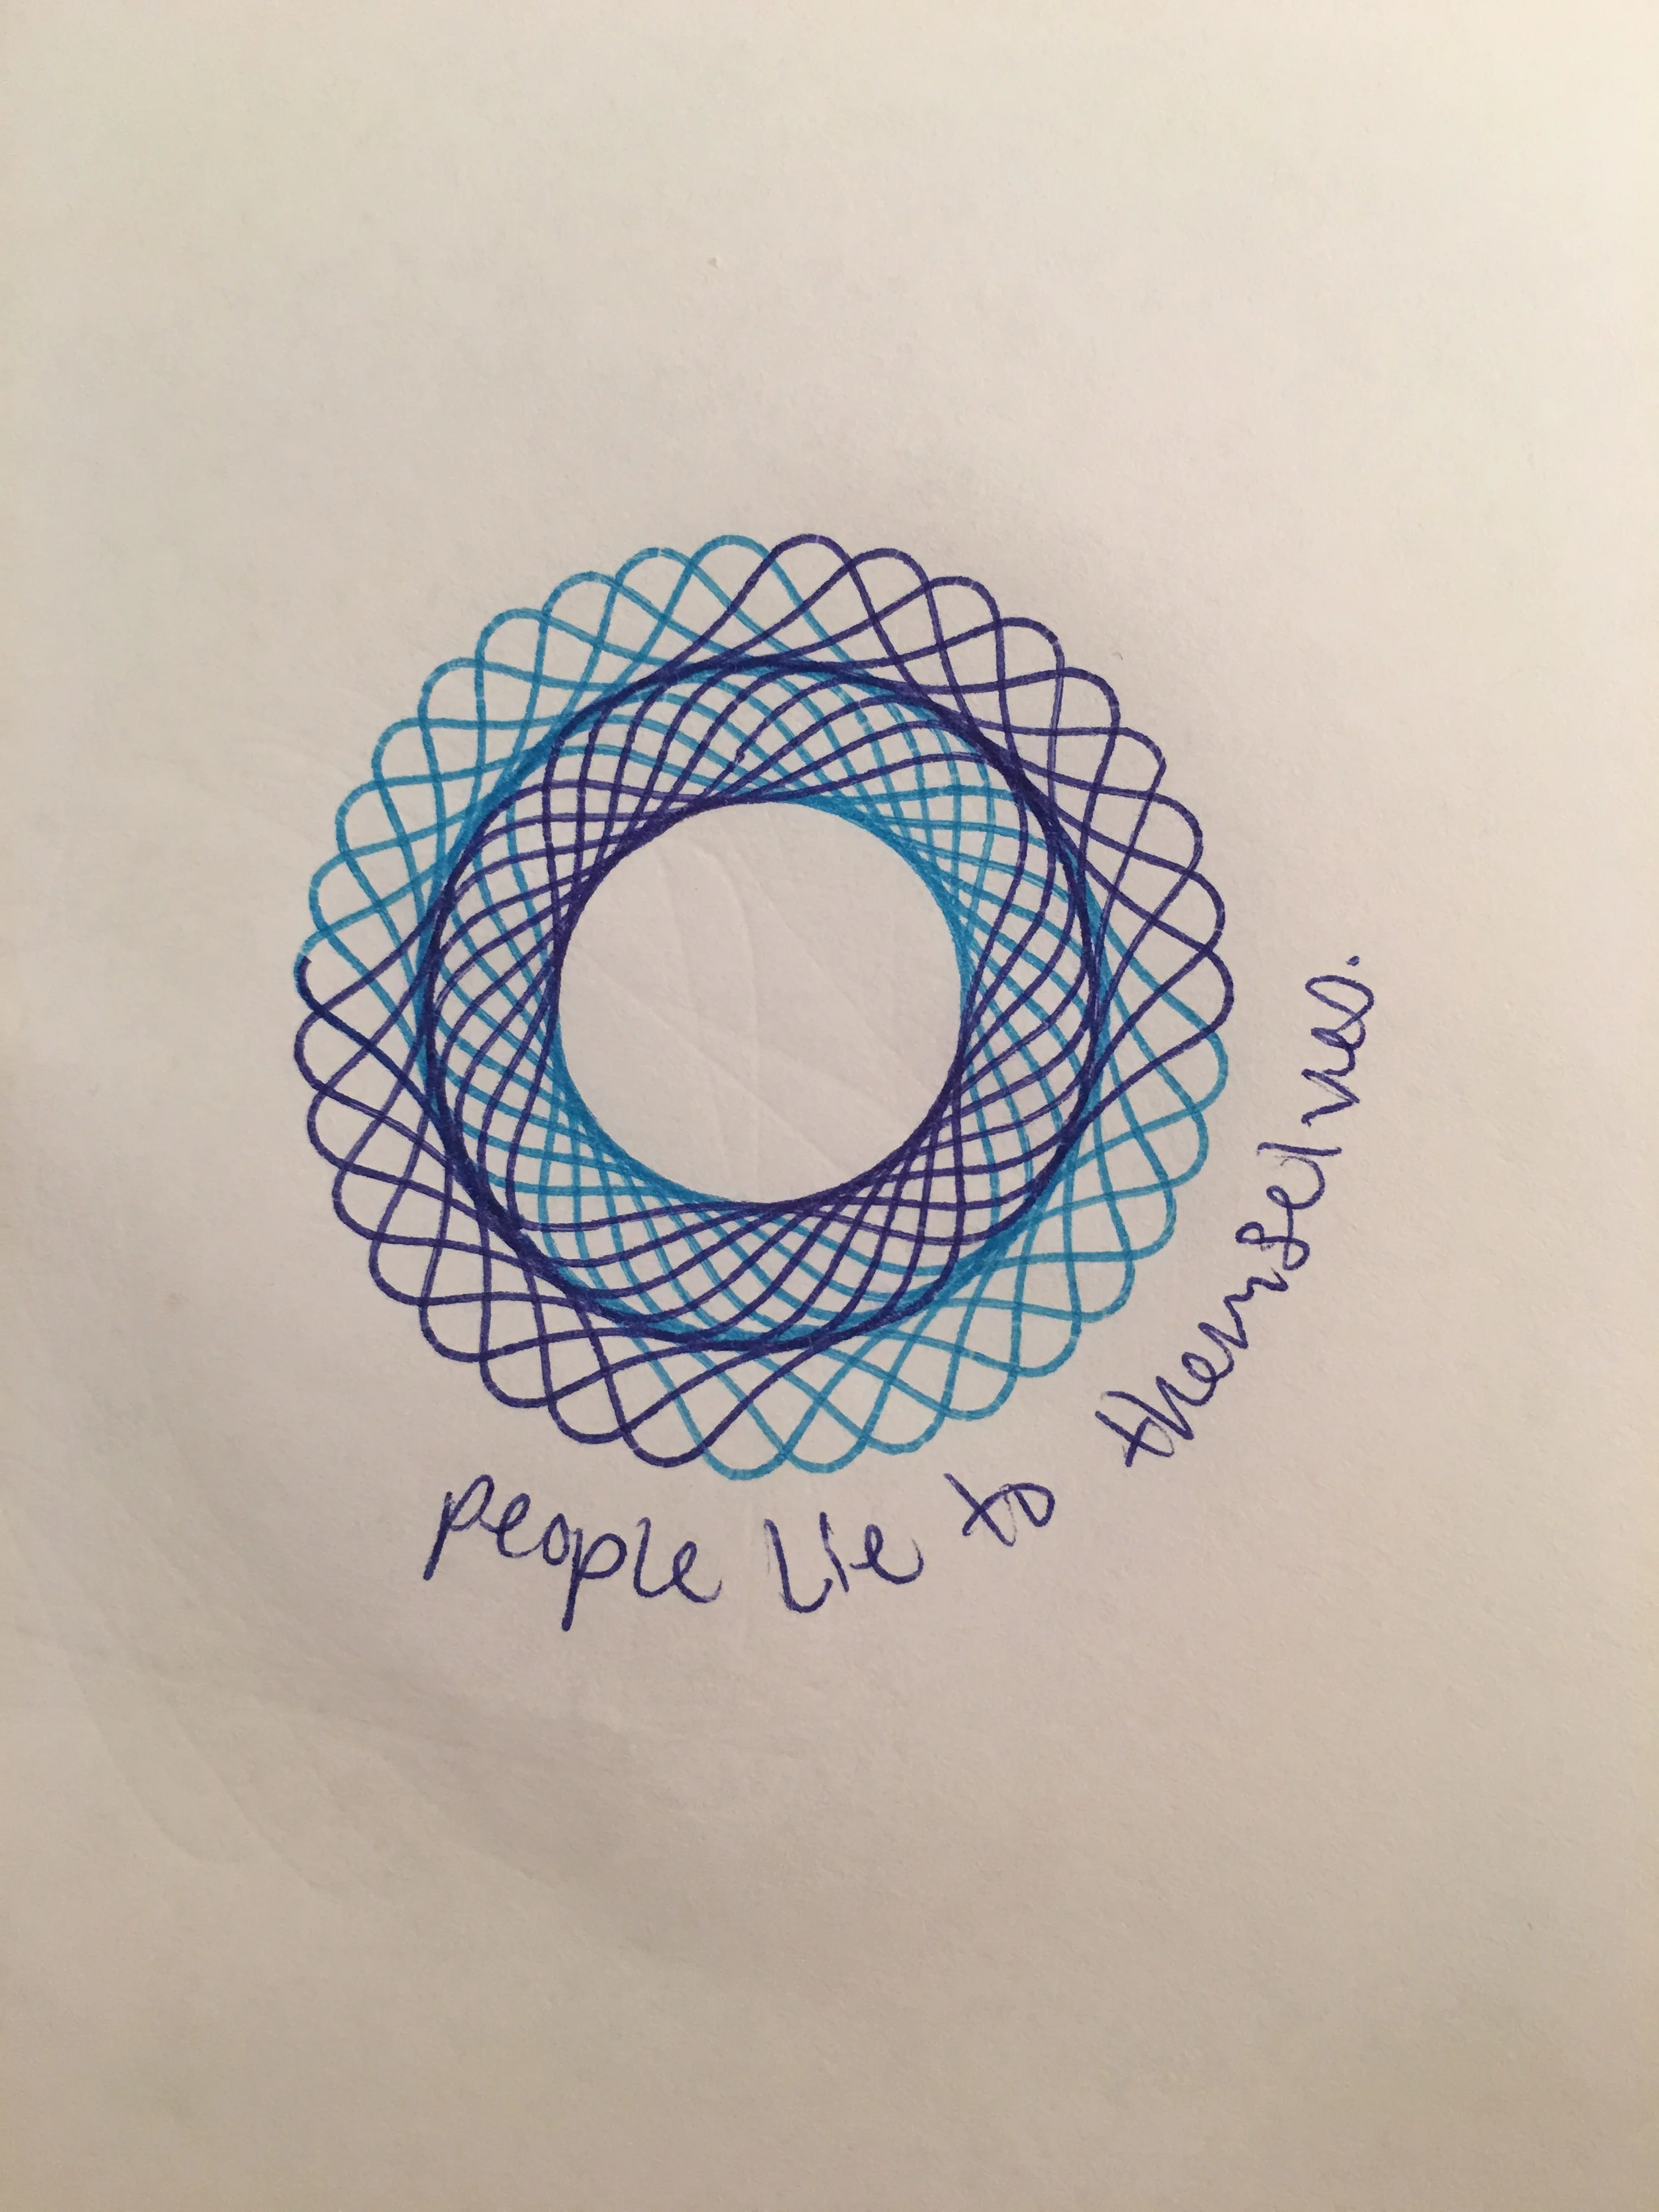 people lie to themselves.